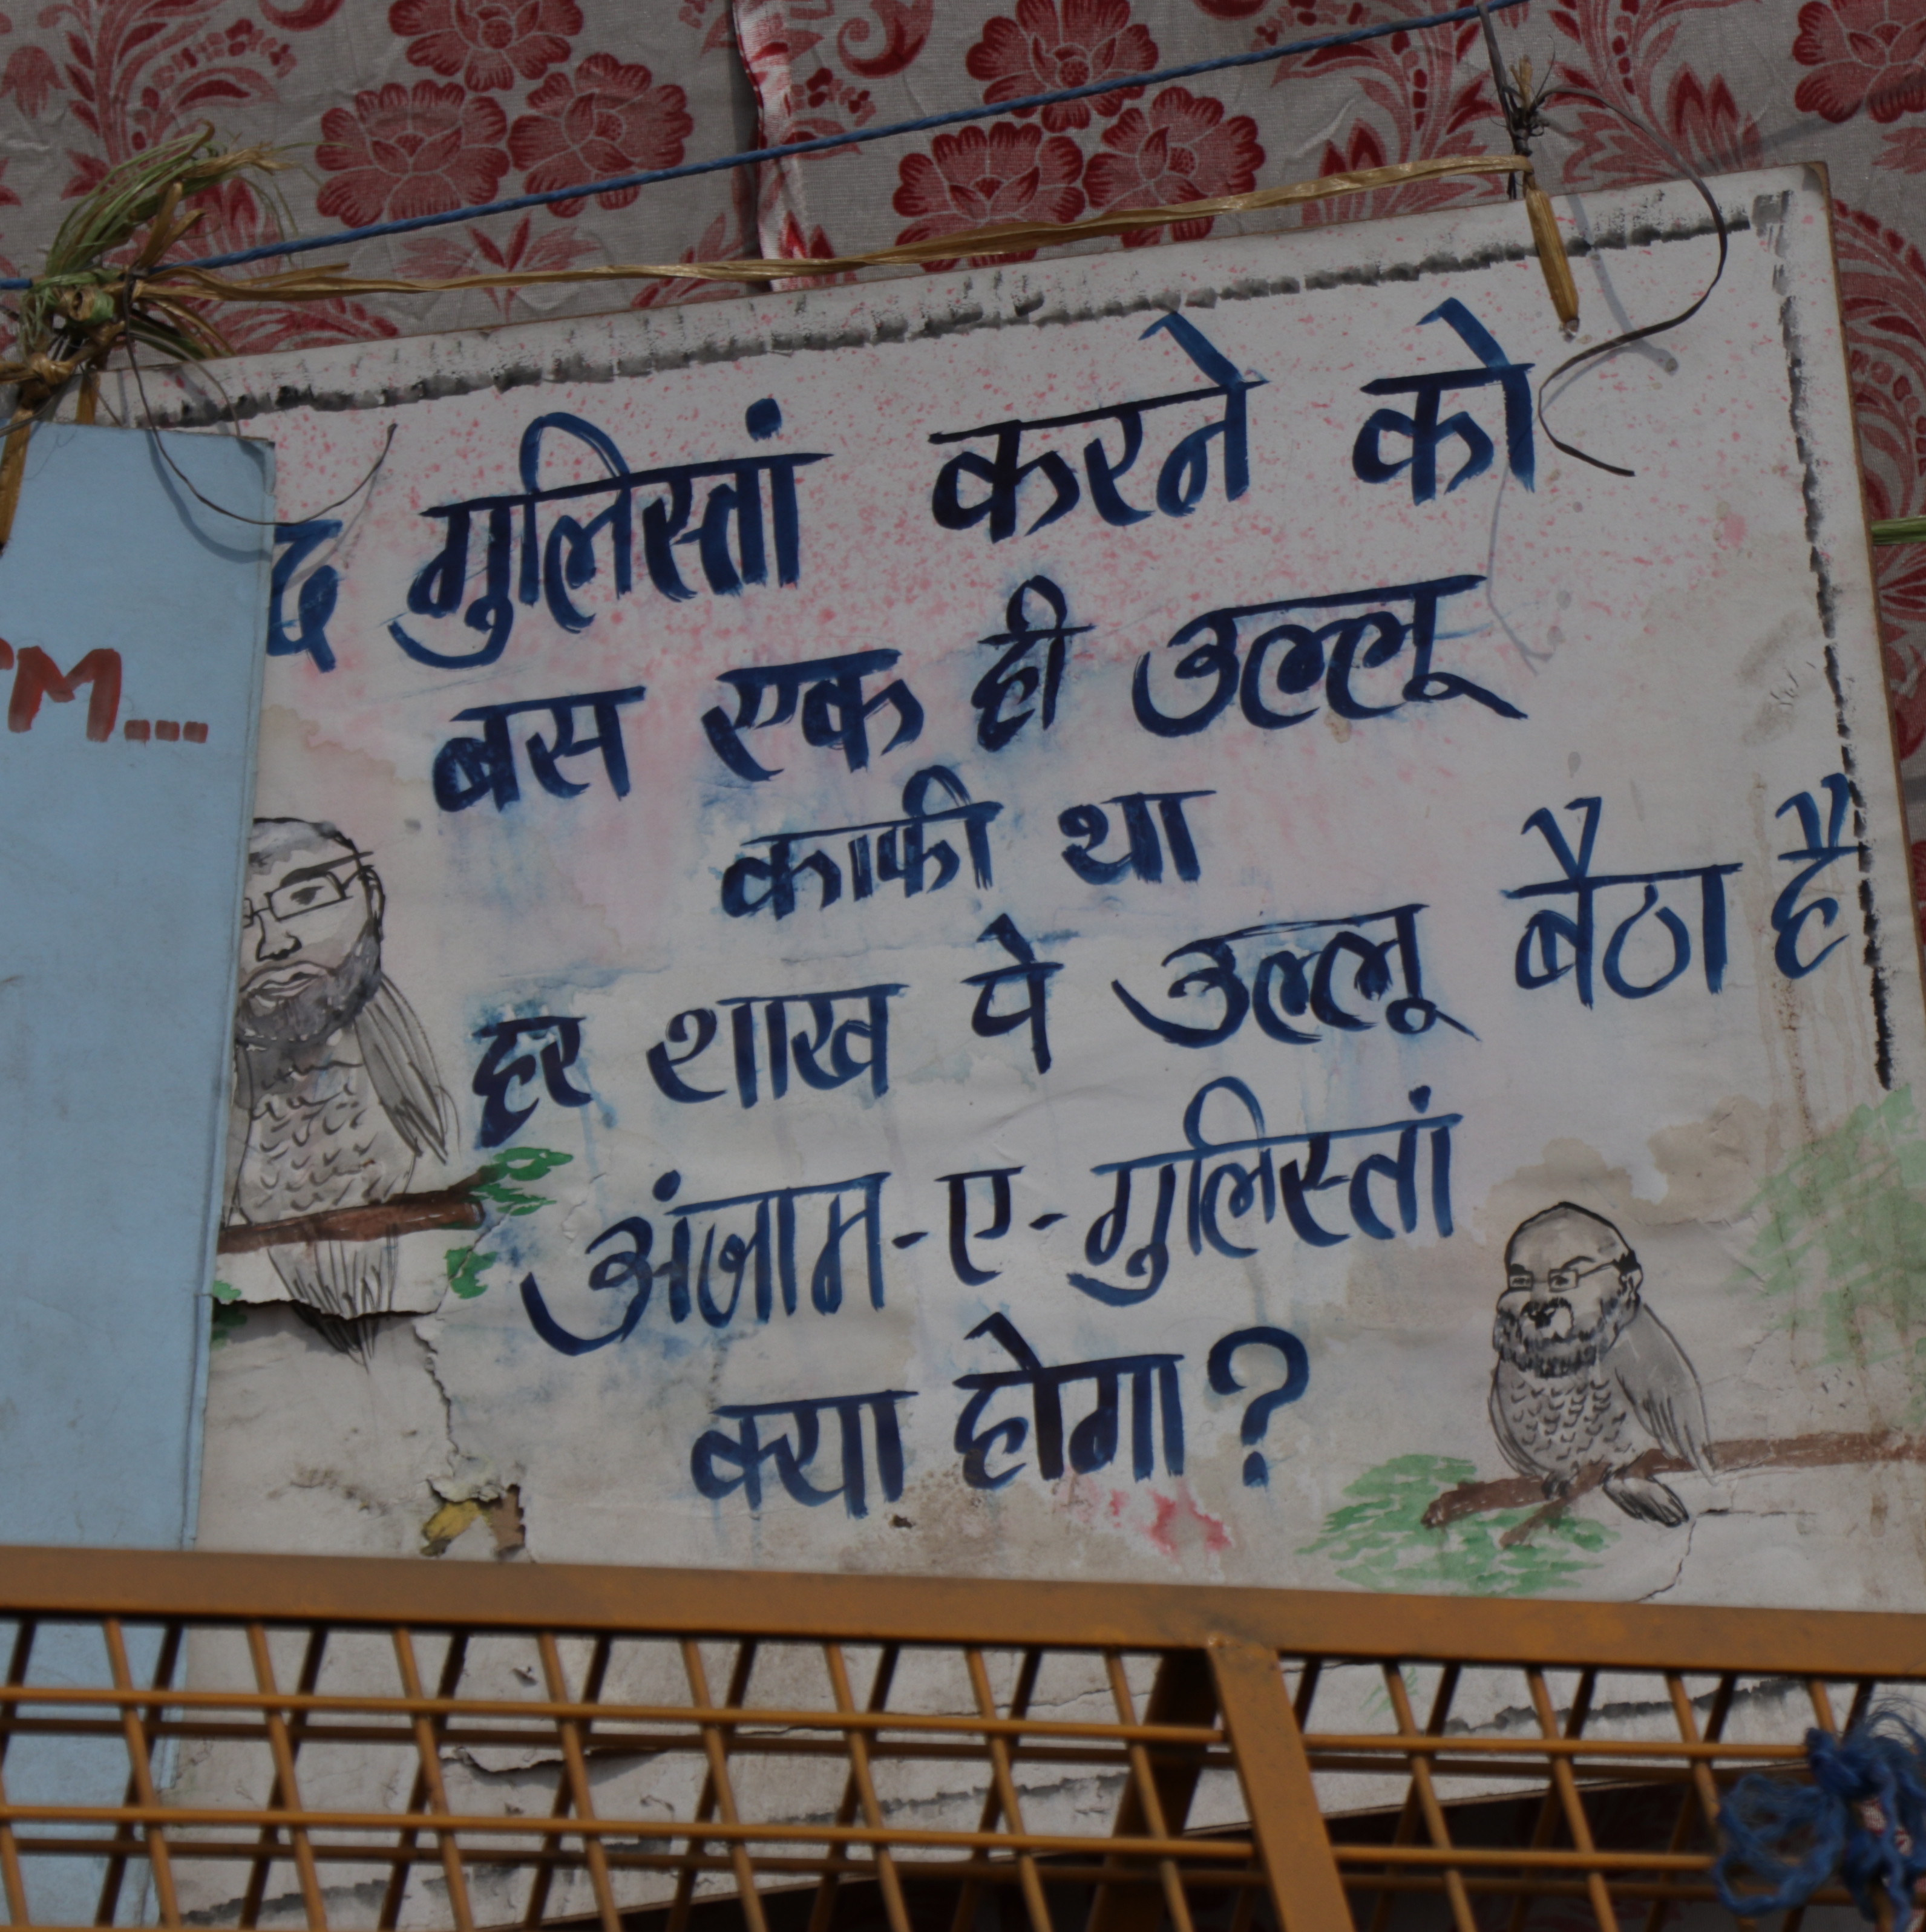 द गुलिस्तां करने को
बस एक ही उल्लू
काफी था
हर शाख पे उल्लू बैठा है
अंजाम-ए-गुलिस्तां
क्या होगा?
M...